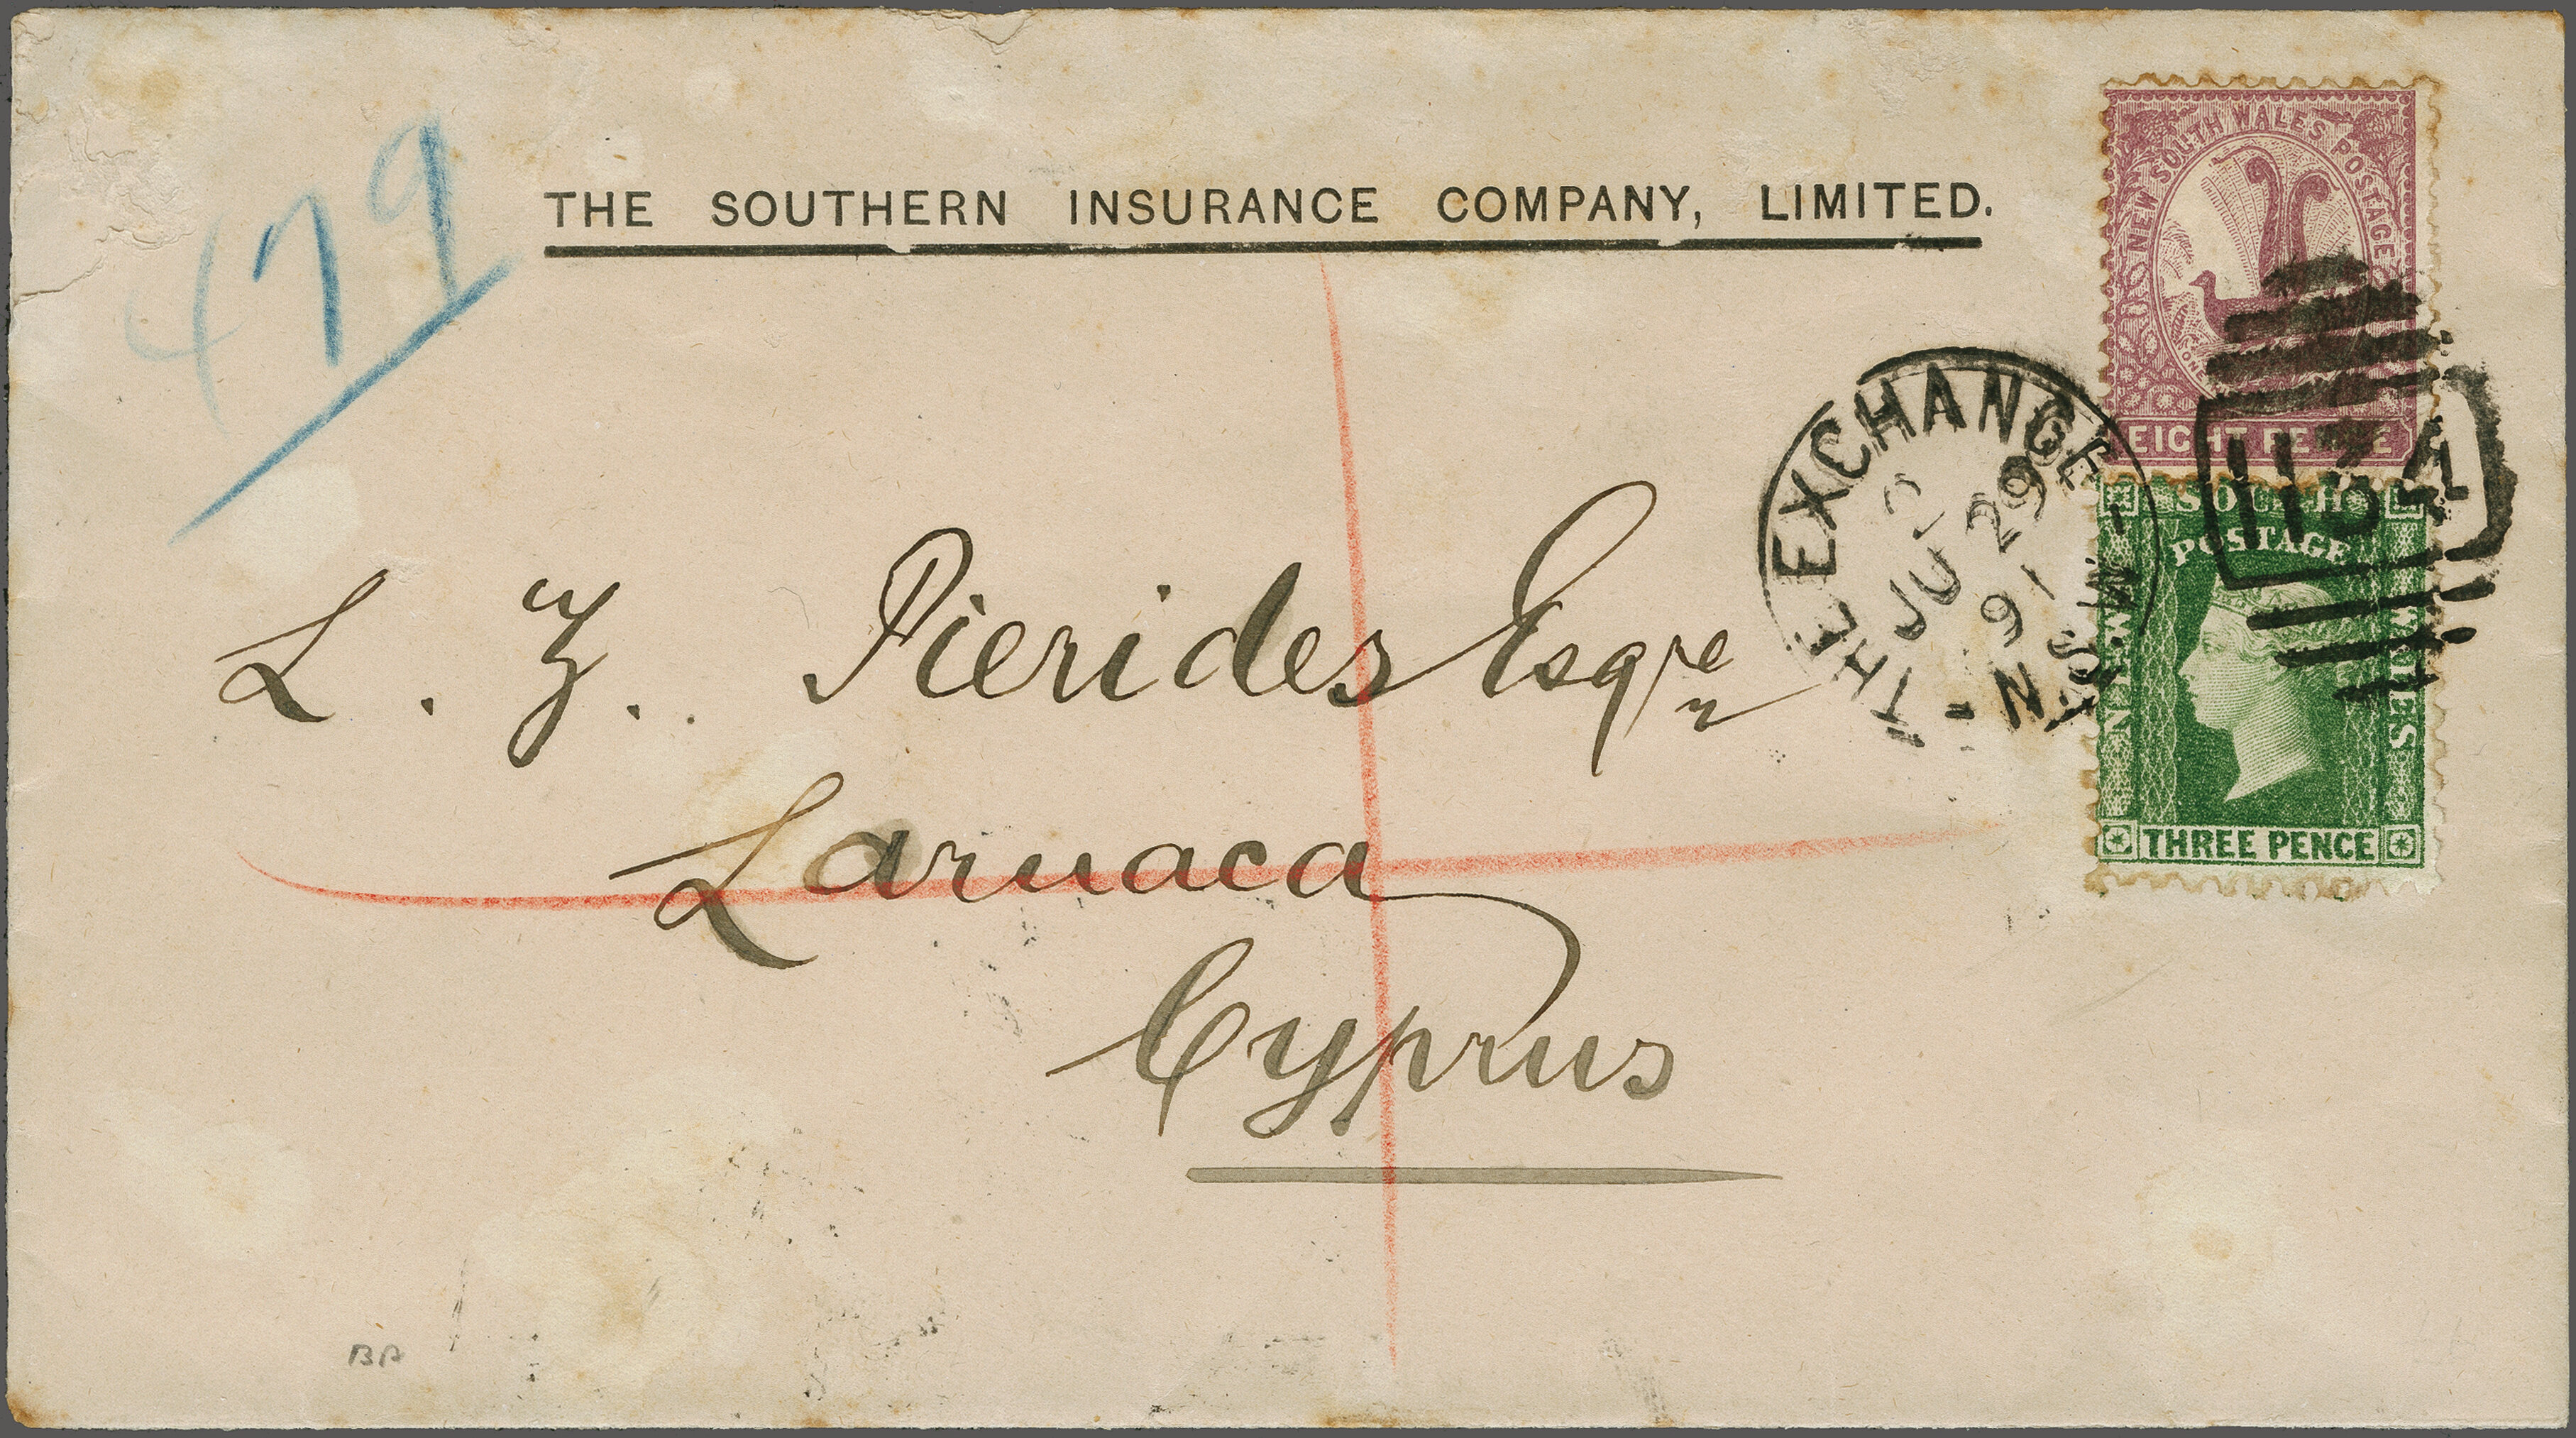 479
THE SOUTHERN INSURANCE COMPANY, LIMITED.
NEW SOUTH WALES POSTAGE
ONE
EIGHT PENCE
THE EXCHANGE
JU 29
91
N.S.W
SOUTH
POSTAGE
NEW
WALES
THREE PENCE
L. Z. Pierides Esqre
Larnaca
Cyprus
BA